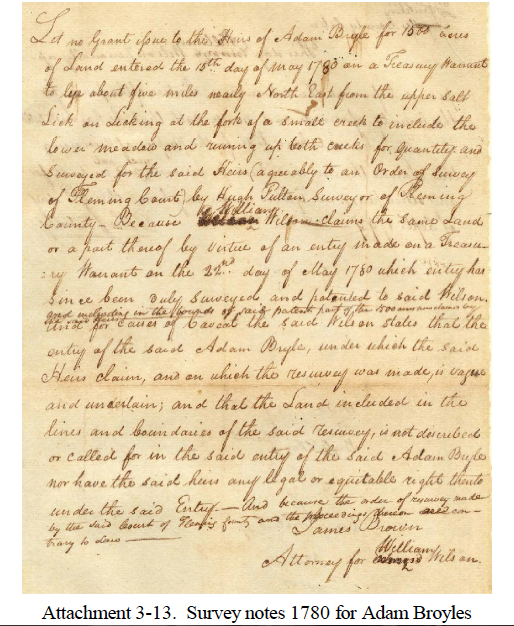 Let no Grant issue to the Heirs of Adam Bryle for 1500 acres
of Land entered the 15th day of May 1780 on a Treasury Warrant
to lye about five miles nearly North East from the upper salt
Lick on Licking at the fork of a small creek to include the
lower meadow and runing up both creeks for quantity and
Surveyed for the said Heirs (agreeably to an Order of Survey
of Fleming Court) by Hugh Fulton, Surveyor of Fleming
County - Because William Wilson claims the same Land
or a part thereof by virtue of an entry made on a Treasu-
ry Warrant on the 22nd day of May 1780 which entry has
Since been duly surveyed and patented to said Wilson.
and including in the bounds of said patent part of the 1500 acres claimed by
the said Heirs
And for causes of Caveat the said Wilson states that the
entry of the said Adam Bryle, under which the said
Heirs claim, and on which the resurvey was made, is vague
and uncertain; and that the Land included in the
lines and boundaries of the said resurvey, is not described
or called for in the said entry of the said Adam Bryle
nor have the said heirs any legal or equitable right thereto
under the said Entry. - And because the order of resurvey made
by the said Court of Fleming and the proceedings thereon are con-
trary to Law -
James Brown
Attorney for William Wilson.
Attachment 3-13. Survey notes 1780 for Adam Broyles